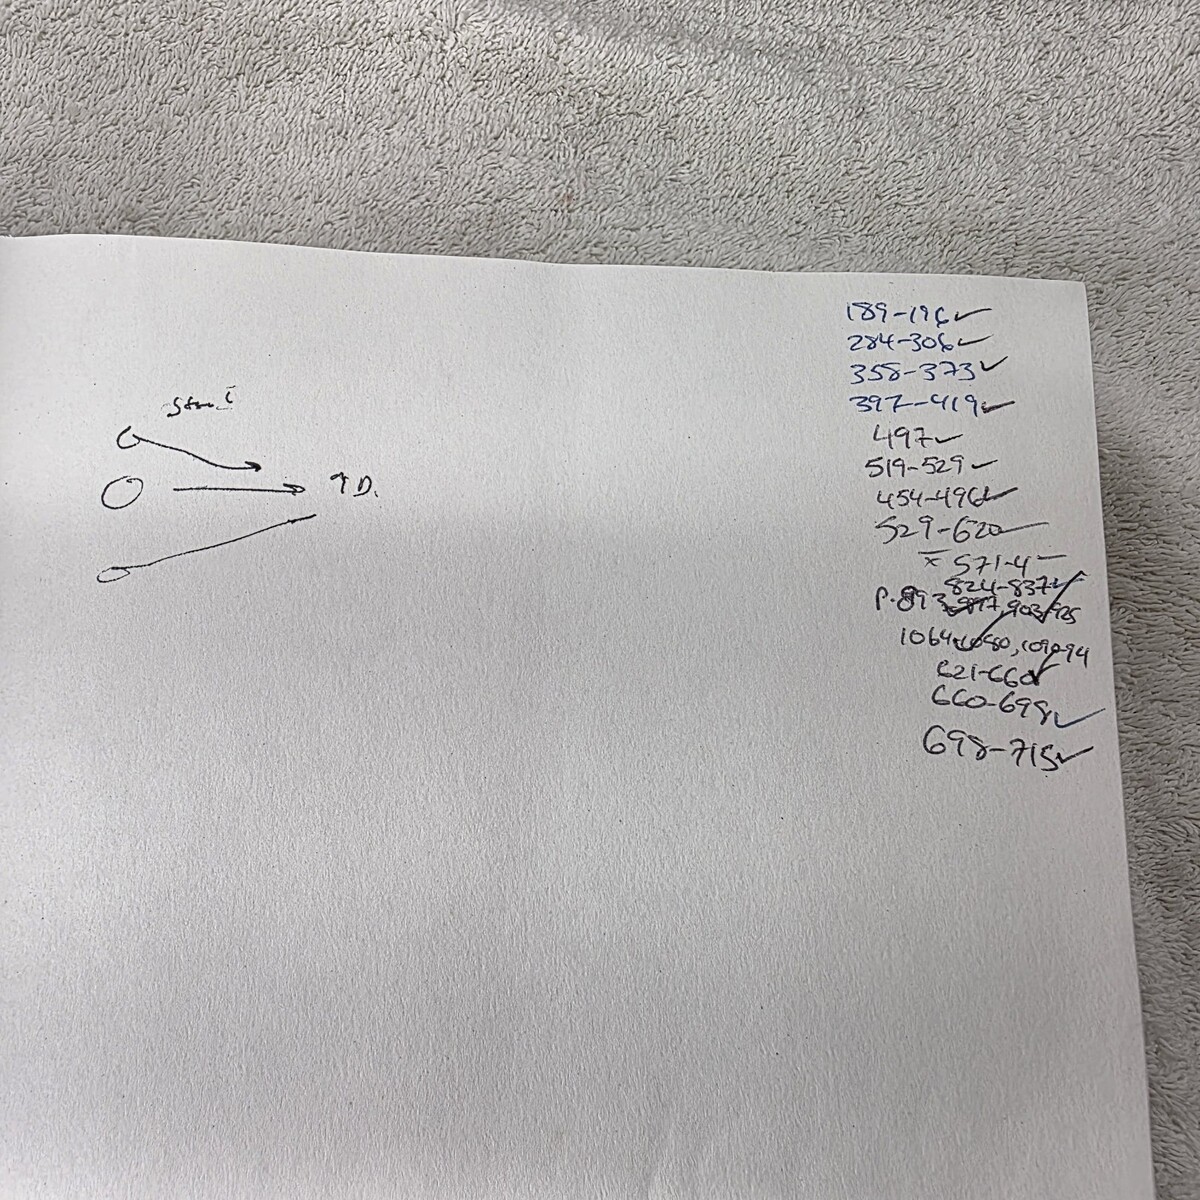 ↑D.
189-196✓
284-306✓
358-373✓
397-419✓
497✓
519-529✓
454-496✓
529-620
x 571-4
824-837✓
P. 893, 903
1064-1080, 1090-94
621-660✓
660-698✓
698-715✓